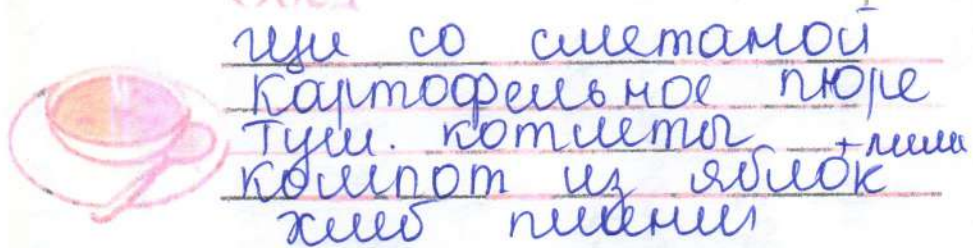 щи со сметаной
Картофельное пюре
Туш. котлеты
компот из яблок
хлеб пшенич